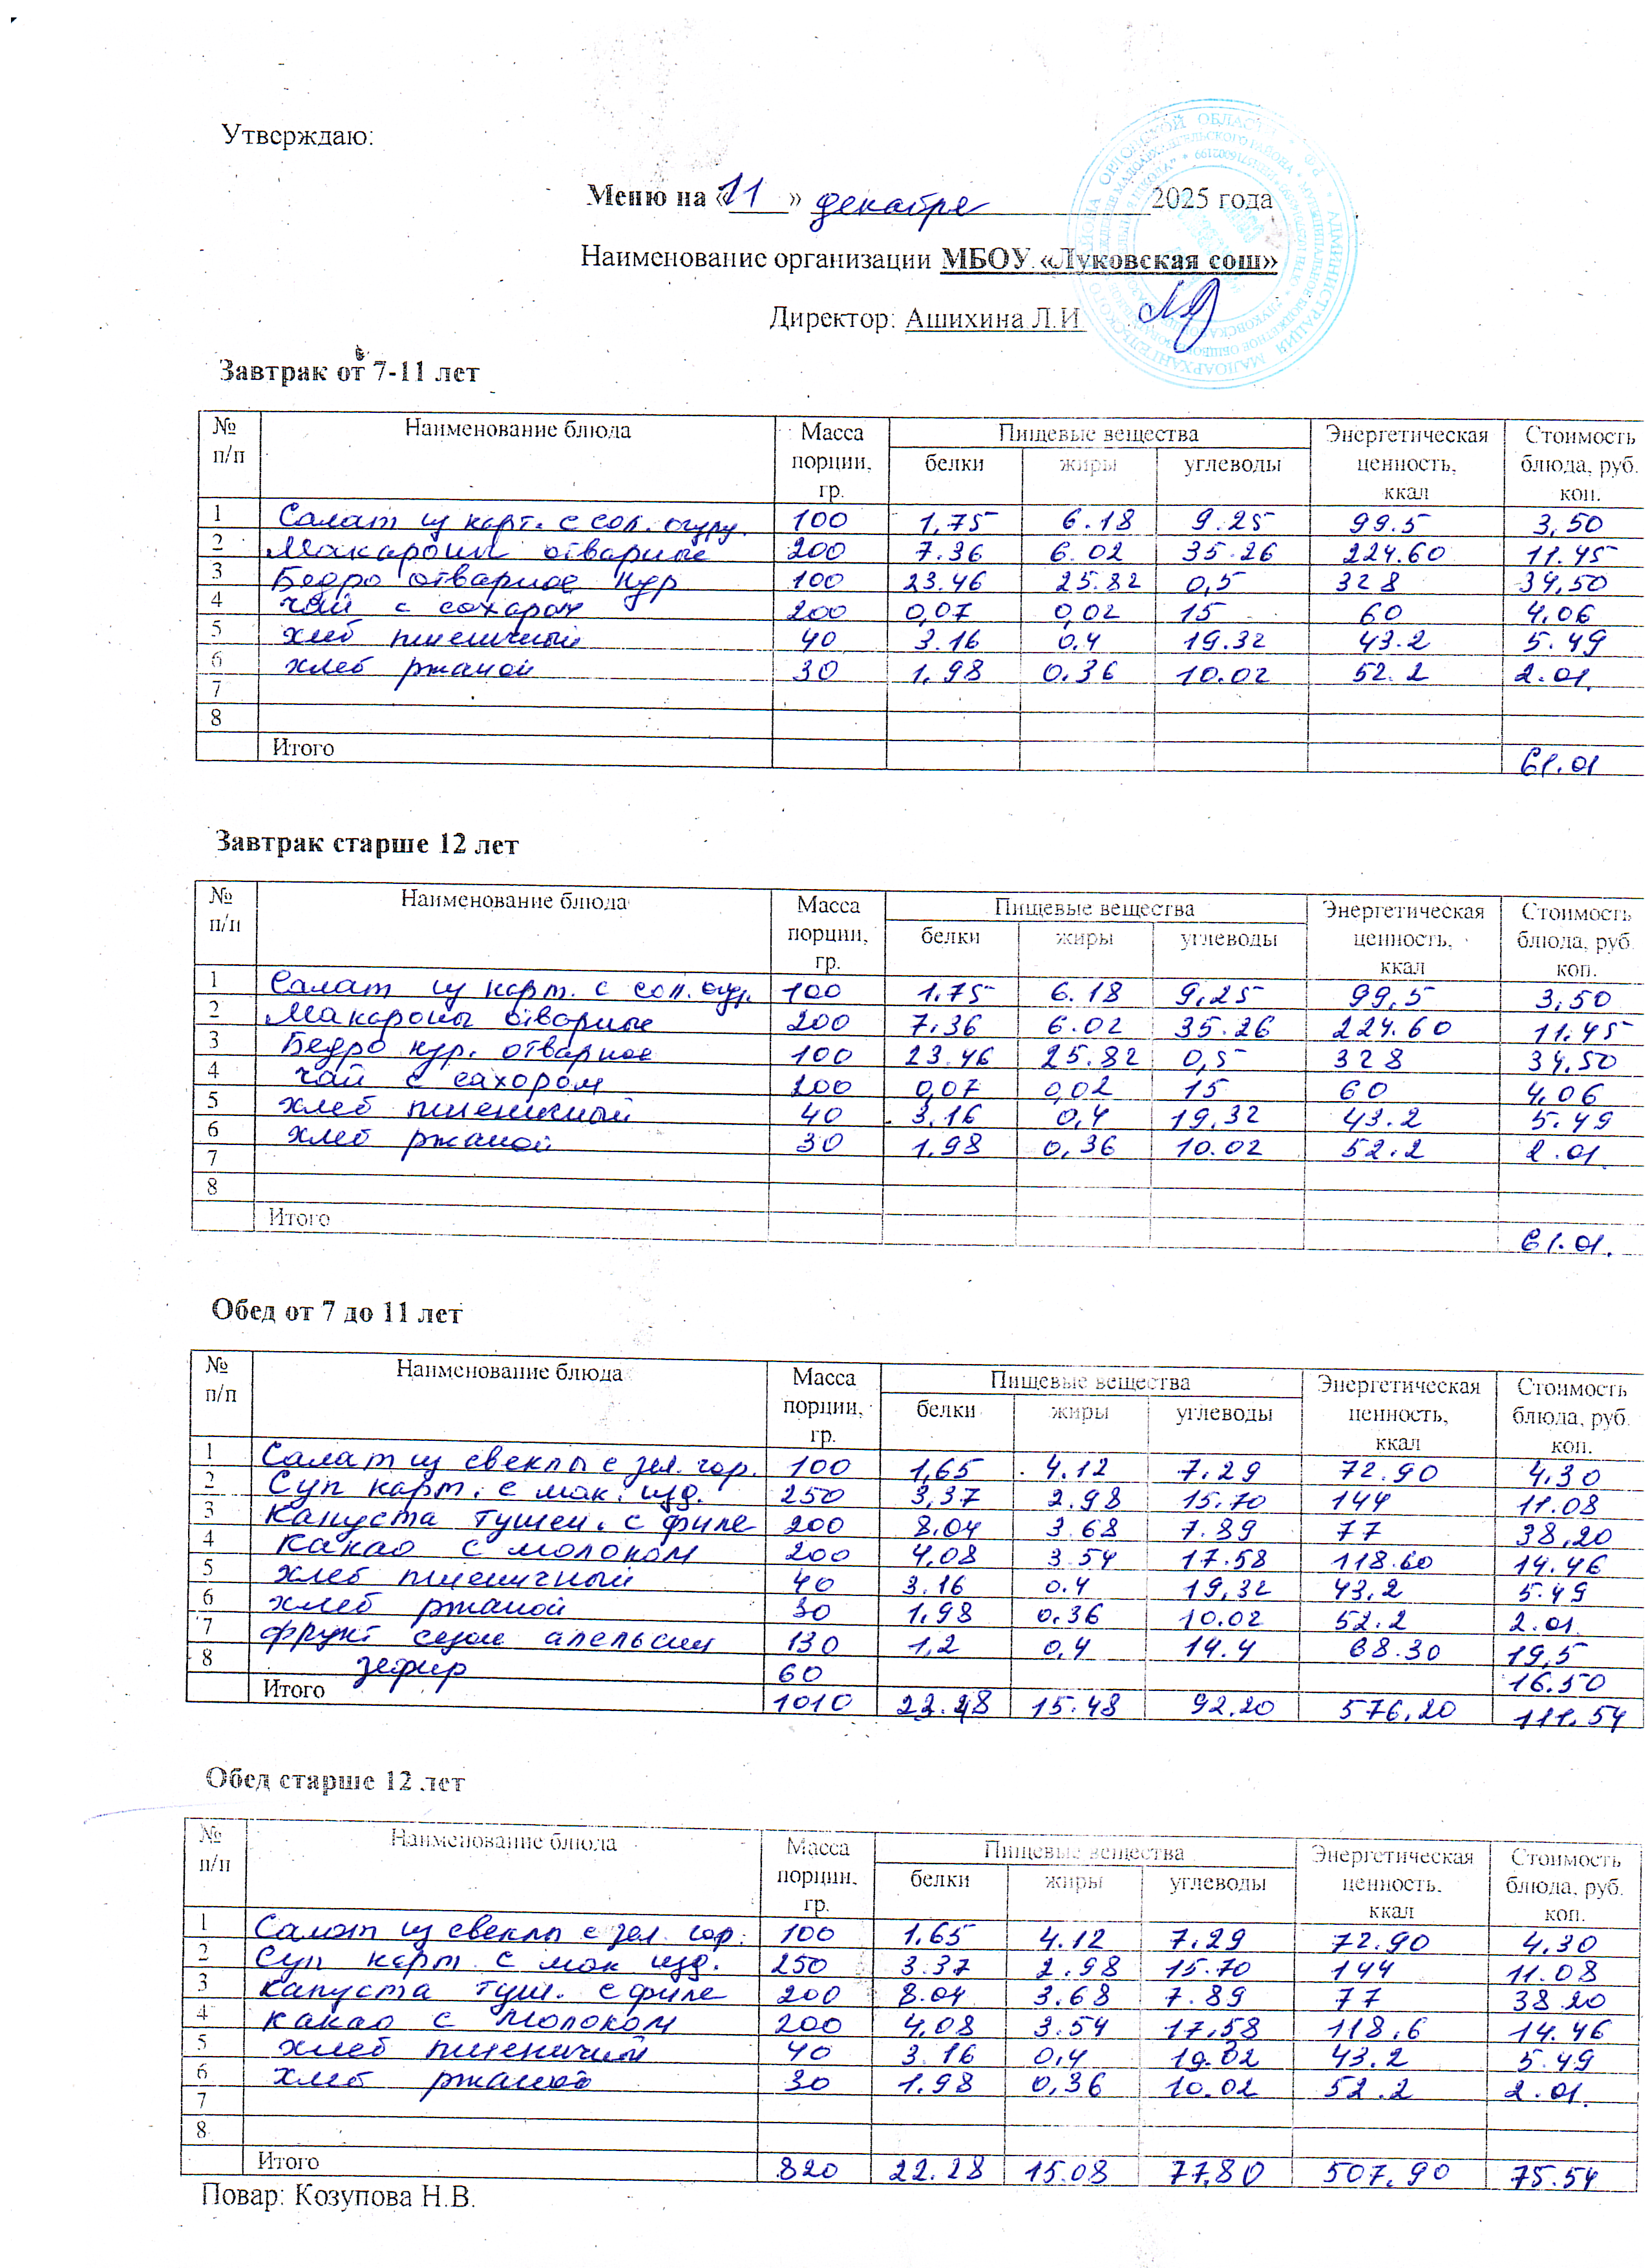 Утверждаю:
Меню на «11» декабря 2025 года
Наименование организации МБОУ «Луковская сош»
Директор: Ашихина Л.И
Завтрак от 7-11 лет
№ п/п Наименование блюда Масса порции, гр. Пищевые вещества белки жиры углеводы Энергетическая ценность, ккал Стоимость блюда, руб. коп.
1 Салат из карт. с сол. огур. 100 1,75 6.18 9.25 99.5 3,50
2 Макароны отварные 200 7.36 6.02 35.26 224.60 11.45
3 Бедро отварное кур 100 23.46 25.82 0,5 328 34,50
4 чай с сахаром 200 0,07 0,02 15 60 4,06
5 хлеб пшеничный 40 3.16 0.4 19.32 43.2 5.49
6 хлеб ржаной 30 1.98 0.36 10.02 52.2 2.01.
7
8
Итого 61.01
Завтрак старше 12 лет
№ п/п Наименование блюда Масса порции, гр. Пищевые вещества белки жиры углеводы Энергетическая ценность, ккал Стоимость блюда, руб. коп.
1 Салат из карт. с сол. огур. 100 1.75 6.18 9,25 99,5 3,50
2 Макароны отварные 200 7.36 6.02 35.26 224.60 11.45
3 Бедро кур. отварное 100 23.46 25.82 0,5 328 34,50
4 чай с сахором 200 0,07 0,02 15 60 4,06
5 хлеб пшеничный 40 3.16 0,4 19,32 43.2 5.49
6 хлеб ржаной 30 1.98 0,36 10.02 52.2 2.01.
7
8
Итого 61.01.
Обед от 7 до 11 лет
№ п/п Наименование блюда Масса порции, гр. Пищевые вещества белки жиры углеводы Энергетическая ценность, ккал Стоимость блюда, руб. коп.
1 Салат из свеклы с зел. гор. 100 1,65 4.12 7.29 72.90 4,30
2 Суп карт. с мак. изд. 250 3,37 2.98 15.70 144 11.08
3 Капуста тушен. с филе 200 8.04 3.68 7.89 77 38,20
4 Какао с молоком 200 4,08 3.54 17.58 118.60 14.46
5 хлеб пшеничный 40 3.16 0.4 19,32 43,2 5.49
6 хлеб ржаной 30 1,98 0.36 10.02 52.2 2.01.
7 фрукт свежи апельсин 130 1,2 0,4 14.4 68.30 19,5
8 зефир 60 16.50
Итого 1010 15.48 92.20 576,20 111.54
Обед старше 12 лет
№ п/п Наименование блюда Масса порции, гр. Пищевые вещества белки жиры углеводы Энергетическая ценность, ккал Стоимость блюда, руб. коп.
1 Салат из свеклы с зел. гор. 100 1.65 4.12 7.29 72.90 4,30
2 Суп карт. с мак изд. 250 3.37 2.98 15.70 144 11.08
3 капуста туш. с филе 200 8.04 3.68 7.89 77 38.20
4 какао с молоком 200 4,08 3.54 17,58 118,6 14.46
5 хлеб пшеничий 40 3.16 0,4 19.02 43.2 5.49
6 хлеб ржаной 30 1.98 0,36 10.02 52.2 2.01.
7
8
Итого 820 22.28 15.08 77,80 507.90 75.54
Повар: Козупова Н.В.